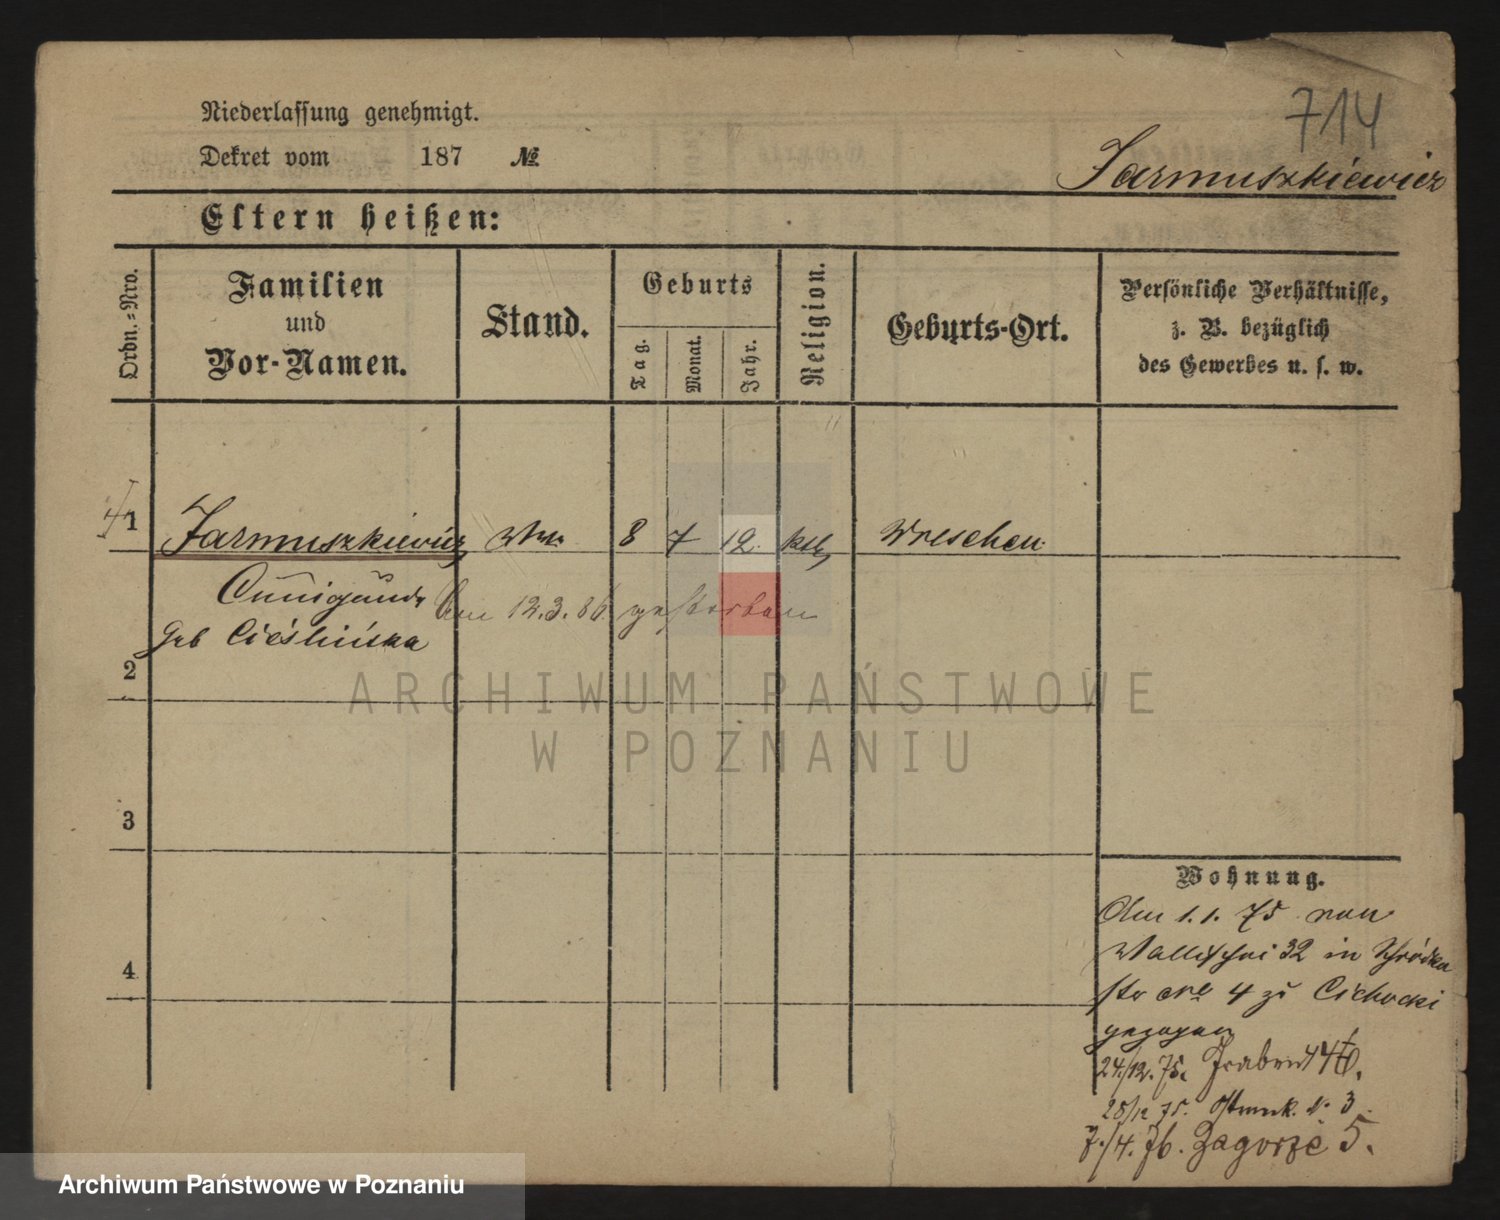 714
Niederlassung genehmigt.
Dekret vom 187 №
Jarmuszkiewicz
Eltern heißen:
Ordn.=Nro.
Familien
und
Vor-Namen.
Stand.
Geburts
Tag.
Monat.
Jahr.
Religion.
Geburts-Ort.
Persönliche Verhältnisse,
z. B. bezüglich
des Gewerbes u. s. w.
1 Jarmuszkiewicz Wwe 8 7 12. kth Wreschen
Cunigunde
am 12.3.86 gestorben
geb Cieślińska
2
ARCHIWUM PAŃSTWOWE
W POZNANIU
3
4
Wohnung.
Am 1.1.75 von
Wallischei 32 in Schrödka
str 4 zu Cichocki
gezogen
24/12.75.
28/12 75. Ostrowek. N. 3
7./4.76. Zagorze 5.
Archiwum Państwowe w Poznaniu